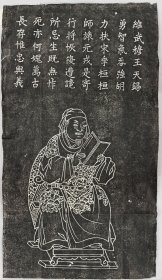 維武穆王天錫
勇智氣吞強胡
力扶宋季桓桓
師旅元戎是寄
行將恢復遭讒
所忌生既無怍
死亦何愧萬古
長存惟忠與義